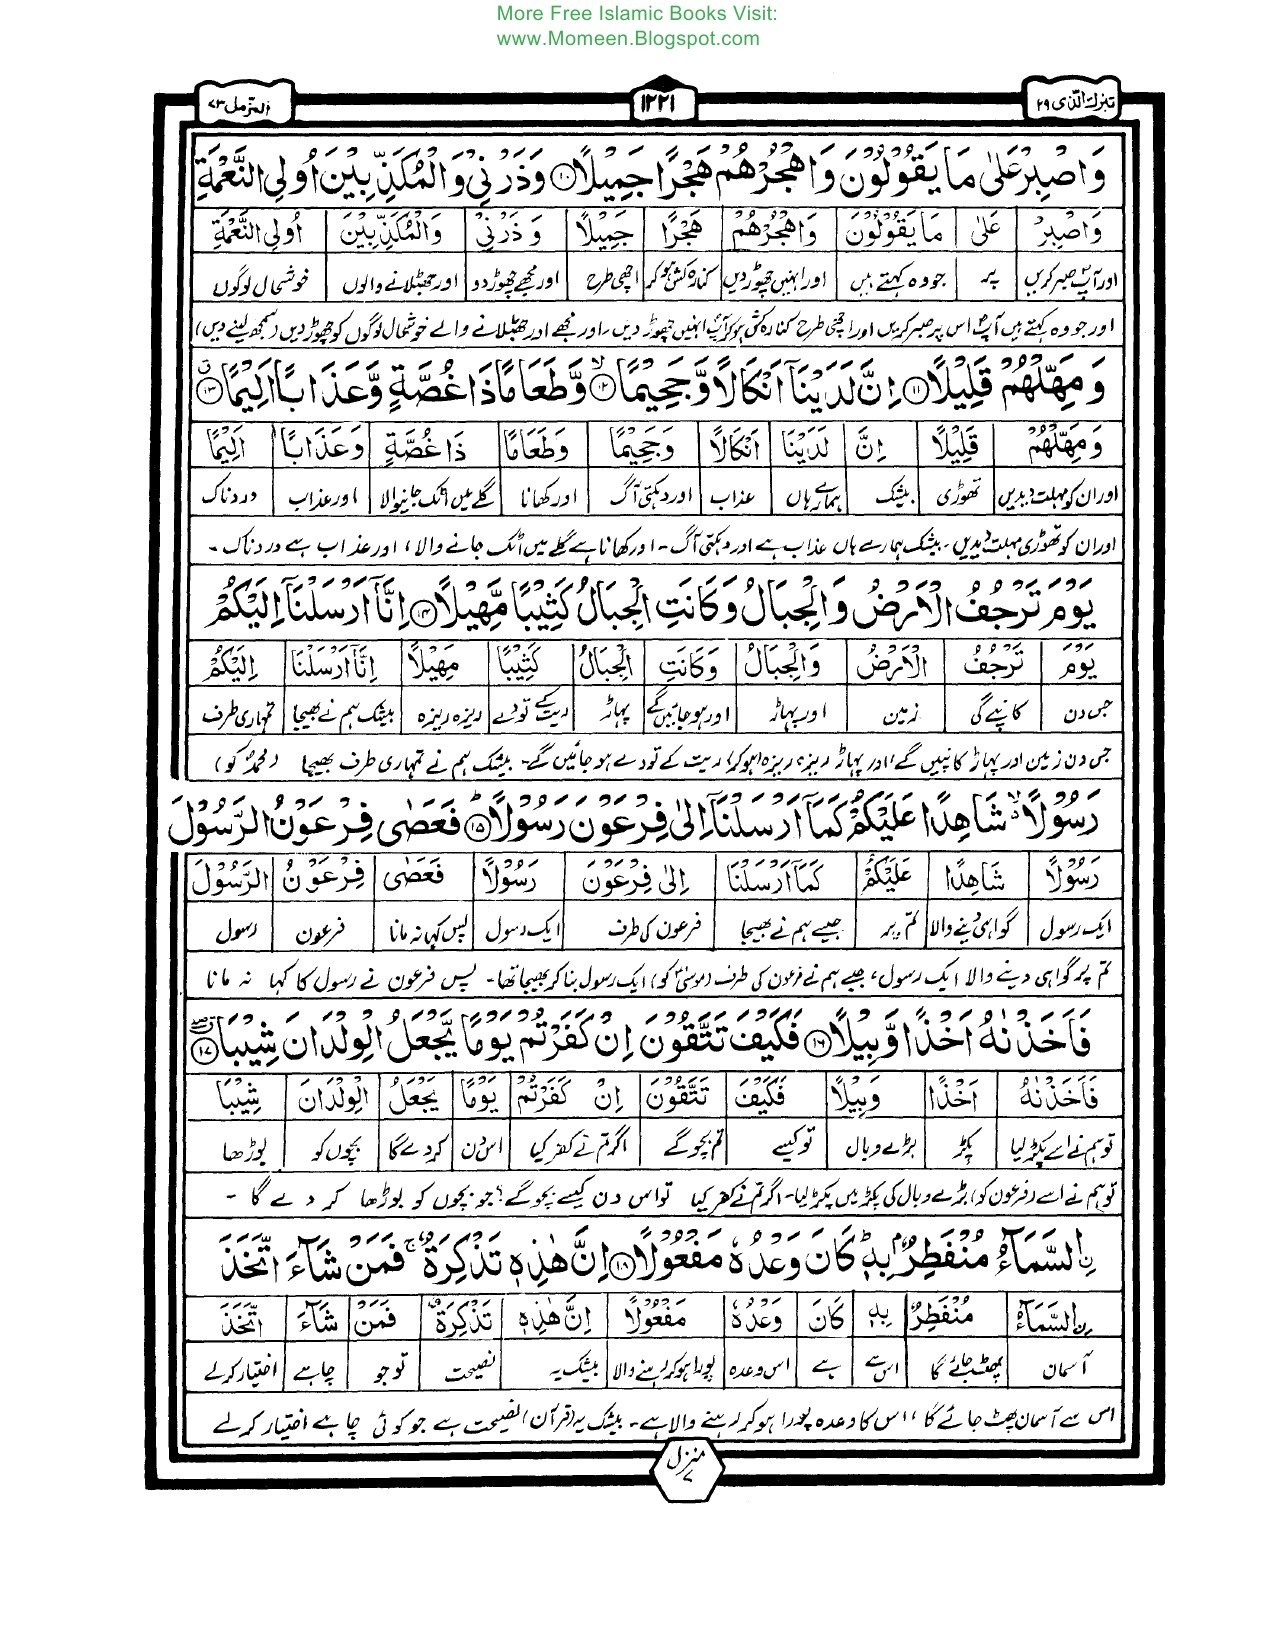 More Free Islamic Books Visit:
www.Momeen.Blogspot.com
تبٰرک الّذی ۲۹
۱۲۲۱
المزمل ۷۳
وَاصْبِرْ عَلٰى مَا يَقُوْلُوْنَ وَاهْجُرْهُمْ هَجْرًا جَمِيْلًا ۱۰ وَذَرْنِيْ وَالْمُكَذِّبِيْنَ اُولِي النَّعْمَةِ
وَاصْبِرْ عَلٰى مَا يَقُوْلُوْنَ وَاهْجُرْهُمْ هَجْرًا جَمِيْلًا وَذَرْنِيْ وَالْمُكَذِّبِيْنَ اُولِي النَّعْمَةِ
اور آپؐ صبر کریں پر جو وہ کہتے ہیں اور انہیں چھوڑ دیں کنارہ کش ہو کر اچھی طرح اور مجھے چھوڑ دو اور جھٹلانے والوں خوشحال لوگوں
اور جو وہ کہتے ہیں آپؐ اس پر صبر کریں اور اچھی طرح کنارہ کش ہو کر آپؐ انہیں چھوڑ دیں، اور مجھے اور جھٹلانے والے خوشحال لوگوں کو چھوڑ دیں (سمجھ لینے دیں)
وَمَهِّلْهُمْ قَلِيْلًا ۱۱ اِنَّ لَدَيْنَآ اَنْكَالًا وَّجَحِيْمًا ۱۲ وَّطَعَامًا ذَا غُصَّةٍ وَّعَذَابًا اَلِيْمًا ۱۳
وَمَهِّلْهُمْ قَلِيْلًا اِنَّ لَدَيْنَا اَنْكَالًا وَجَحِيْمًا وَطَعَامًا ذَا غُصَّةٍ وَعَذَابًا اَلِيْمًا
اور ان کو مہلت دیدیں تھوڑی بیشک ہمارے ہاں عذاب اور دہکتی آگ اور کھانا گلے میں اٹک جانیوالا اور عذاب دردناک
اور ان کو تھوڑی مہلت دیدیں۔ بیشک ہمارے ہاں عذاب ہے اور دہکتی آگ۔ اور کھانا ہے گلے میں اٹک جانے والا، اور عذاب ہے دردناک۔
يَوْمَ تَرْجُفُ الْاَرْضُ وَالْجِبَالُ وَكَانَتِ الْجِبَالُ كَثِيْبًا مَّهِيْلًا ۱۴ اِنَّآ اَرْسَلْنَآ اِلَيْكُمْ
يَوْمَ تَرْجُفُ الْاَرْضُ وَالْجِبَالُ وَكَانَتِ الْجِبَالُ كَثِيْبًا مَهِيْلًا اِنَّآ اَرْسَلْنَا اِلَيْكُمْ
جس دن کانپے گی زمین اور پہاڑ اور ہو جائیں گے پہاڑ ریت کے تودے ریزہ ریزہ بیشک ہم نے بھیجا تمہاری طرف
جس دن زمین اور پہاڑ کانپیں گے، اور پہاڑ ریزہ ریزہ (ہو کر) ریت کے تودے ہو جائیں گے۔ بیشک ہم نے تمہاری طرف بھیجا (محمدؐ کو)
رَسُوْلًا شَاهِدًا عَلَيْكُمْ كَمَآ اَرْسَلْنَآ اِلٰى فِرْعَوْنَ رَسُوْلًا ۱۵ فَعَصٰى فِرْعَوْنُ الرَّسُوْلَ
رَسُوْلًا شَاهِدًا عَلَيْكُمْ كَمَآ اَرْسَلْنَا اِلٰى فِرْعَوْنَ رَسُوْلًا فَعَصٰى فِرْعَوْنُ الرَّسُوْلَ
ایک رسول گواہی دینے والا تم پر جیسے ہم نے بھیجا فرعون کی طرف ایک رسول پس کہا نہ مانا فرعون رسول
تم پر گواہی دینے والا ایک رسول، جیسے ہم نے فرعون کی طرف (موسیٰؑ کو) ایک رسول بنا کر بھیجا تھا۔ پس فرعون نے رسول کا کہا نہ مانا
فَاَخَذْنٰهُ اَخْذًا وَّبِيْلًا ۱۶ فَكَيْفَ تَتَّقُوْنَ اِنْ كَفَرْتُمْ يَوْمًا يَّجْعَلُ الْوِلْدَانَ شِيْبَا ۱۷
فَاَخَذْنٰهُ اَخْذًا وَبِيْلًا فَكَيْفَ تَتَّقُوْنَ اِنْ كَفَرْتُمْ يَوْمًا يَجْعَلُ الْوِلْدَانَ شِيْبَا
تو ہم نے اسے پکڑ لیا پکڑ بڑے وبال تو کیسے تم بچو گے اگر تم نے کفر کیا اس دن کر دے گا بچوں کو بوڑھا
تو ہم نے اسے (فرعون کو) بڑے وبال کی پکڑ میں پکڑ لیا۔ اگر تم نے کفر کیا تو اس دن کیسے بچو گے؟ جو بچوں کو بوڑھا کر دے گا۔
ۨالسَّمَآءُ مُنْفَطِرٌۢ بِهٖ كَانَ وَعْدُهٗ مَفْعُوْلًا ۱۸ اِنَّ هٰذِهٖ تَذْكِرَةٌ فَمَنْ شَآءَ اتَّخَذَ
ۨالسَّمَآءُ مُنْفَطِرٌ بِهٖ كَانَ وَعْدُهٗ مَفْعُوْلًا اِنَّ هٰذِهٖ تَذْكِرَةٌ فَمَنْ شَآءَ اتَّخَذَ
آسمان پھٹ جائے گا اس سے ہے اس وعدہ پورا ہو کر رہنے والا بیشک یہ نصیحت تو جو چاہے اختیار کرلے
اس سے آسمان پھٹ جائے گا، اس کا وعدہ پورا ہو کر رہنے والا ہے۔ بیشک یہ (قرآن) نصیحت ہے جو کوئی چاہے اختیار کرلے
منزل ۷